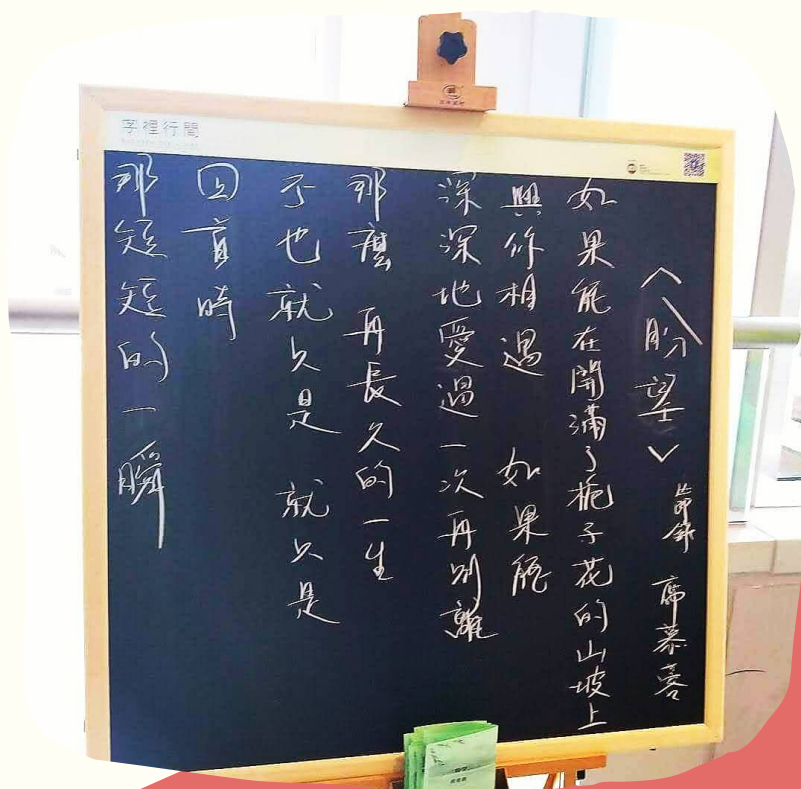 字裡行間
〈盼望〉 節錄 席慕蓉
如果能在開滿了梔子花的山坡上
與你相遇 如果能
深深地愛過一次再別離
那麼 再長久的一生
不也就只是 就只是
回首時
那短短的一瞬